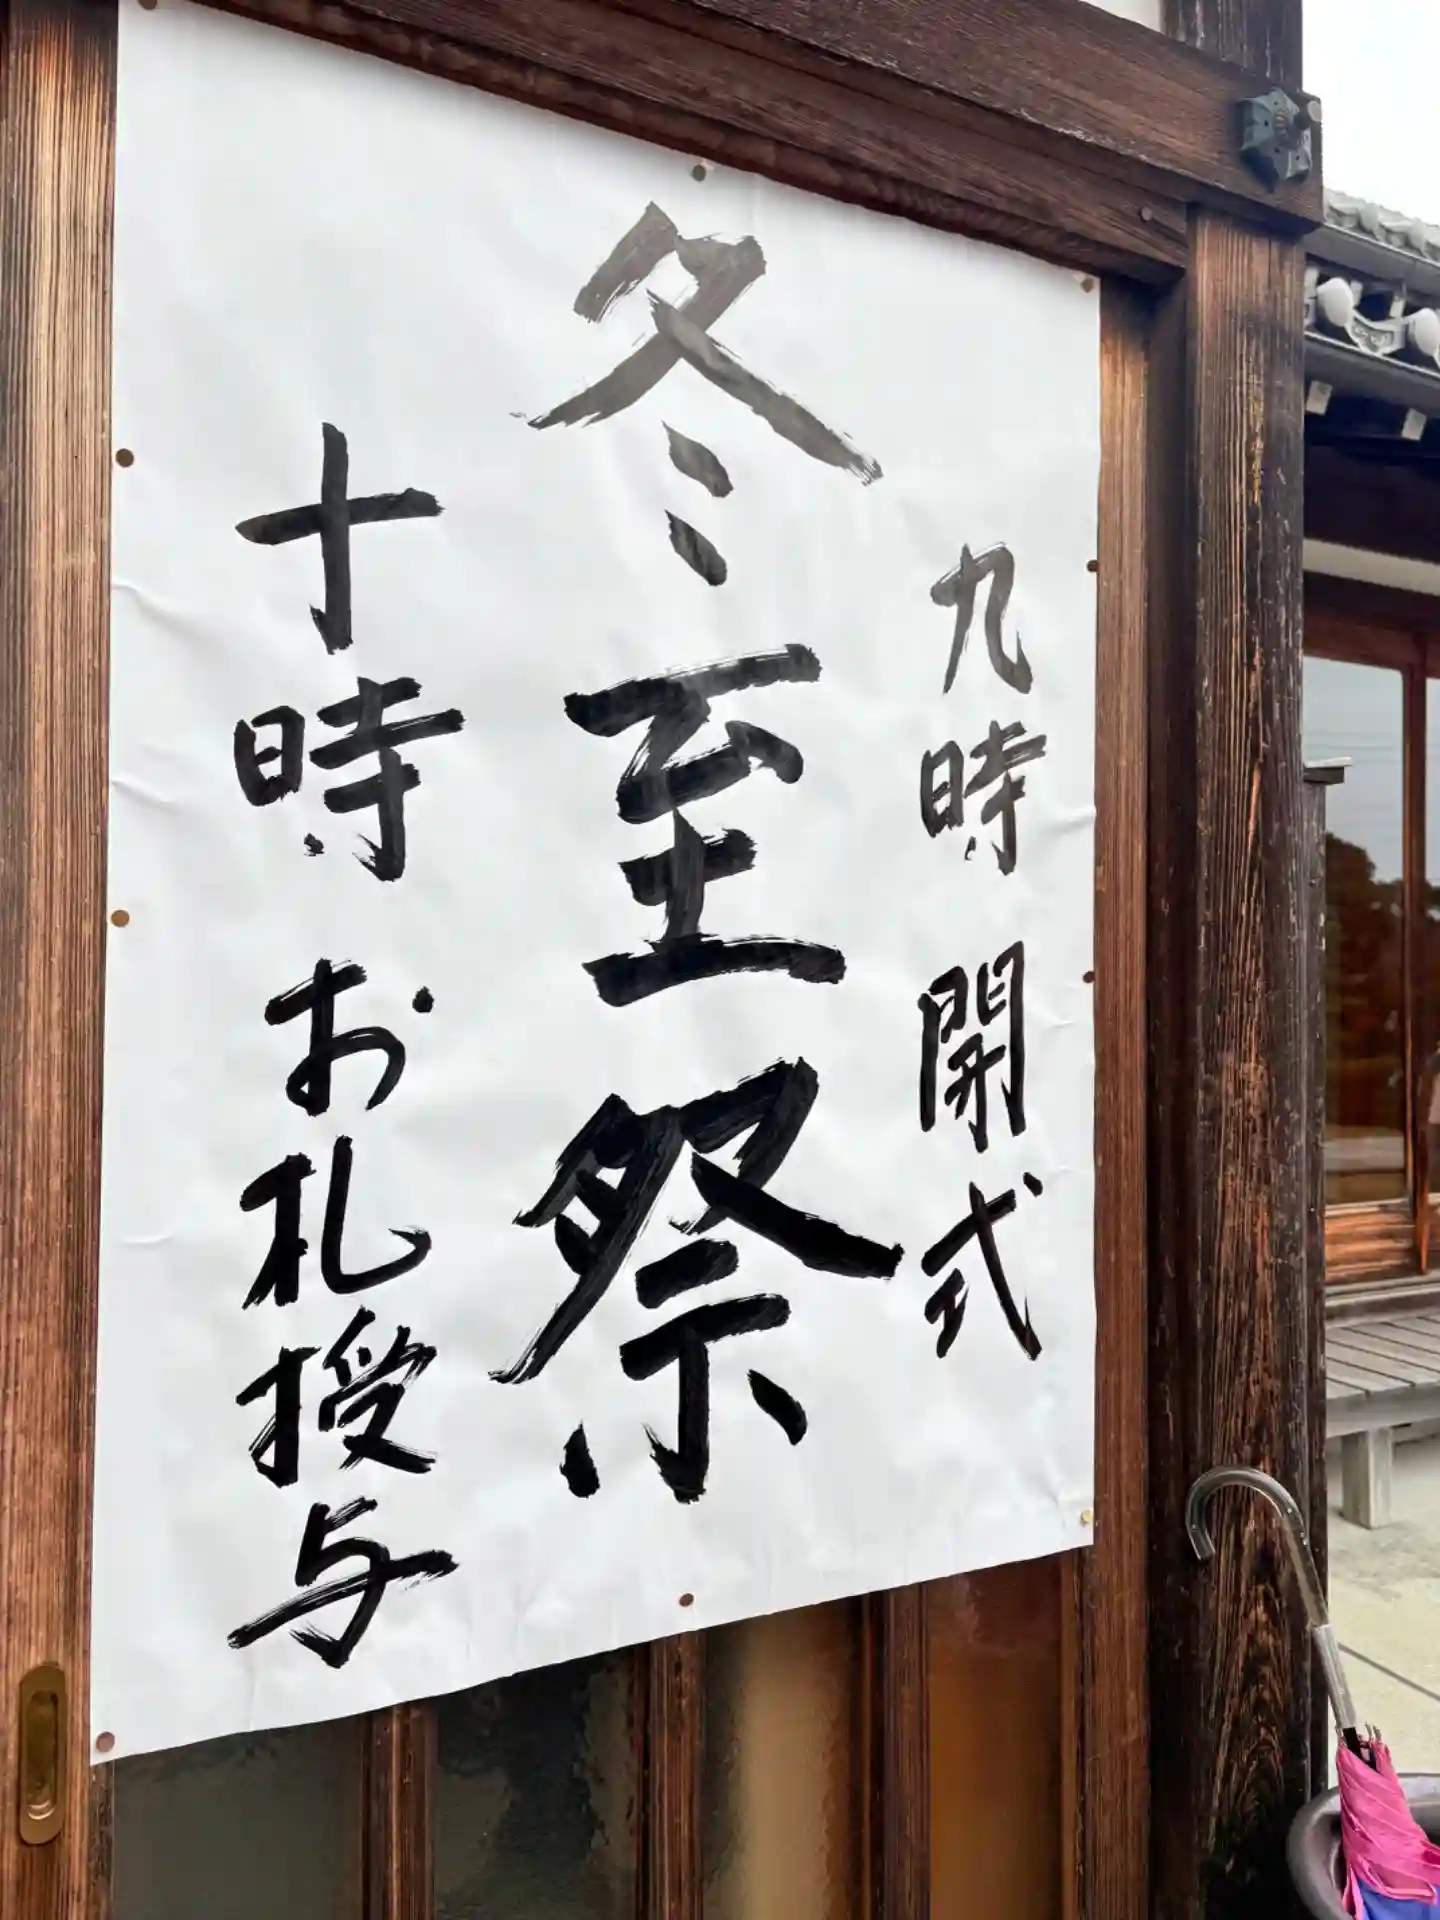 九時 開式
冬至祭
十時 お札授与